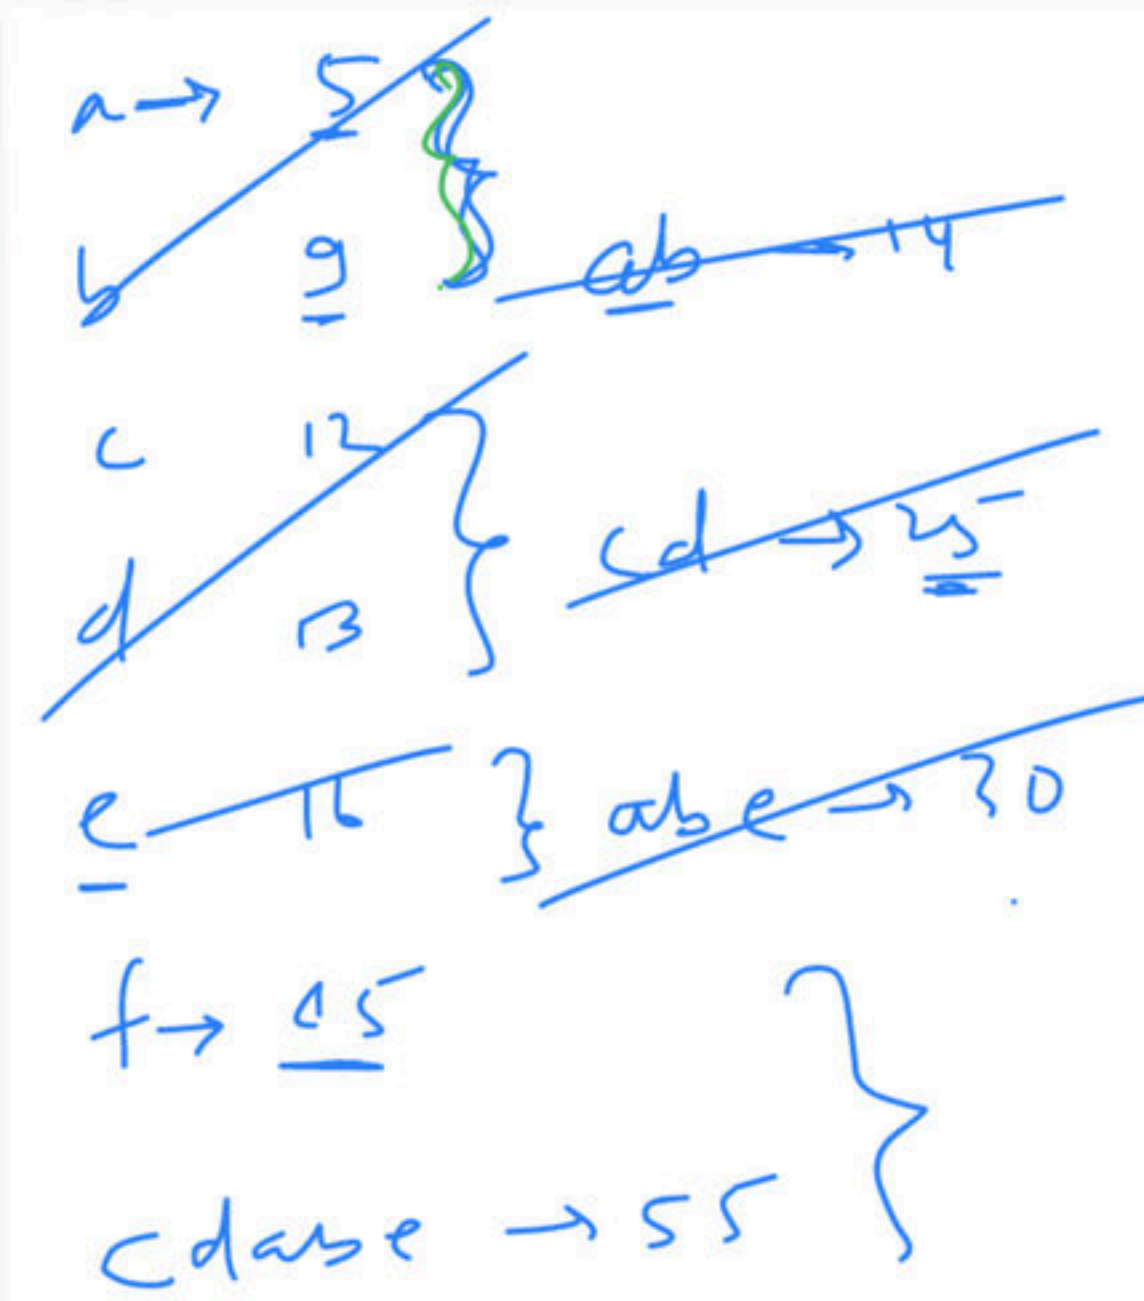 a → 5
b 9 ab → 14
c 12
cd → 25
d 13
e 16 abe → 30
f → 45
cdabe → 55